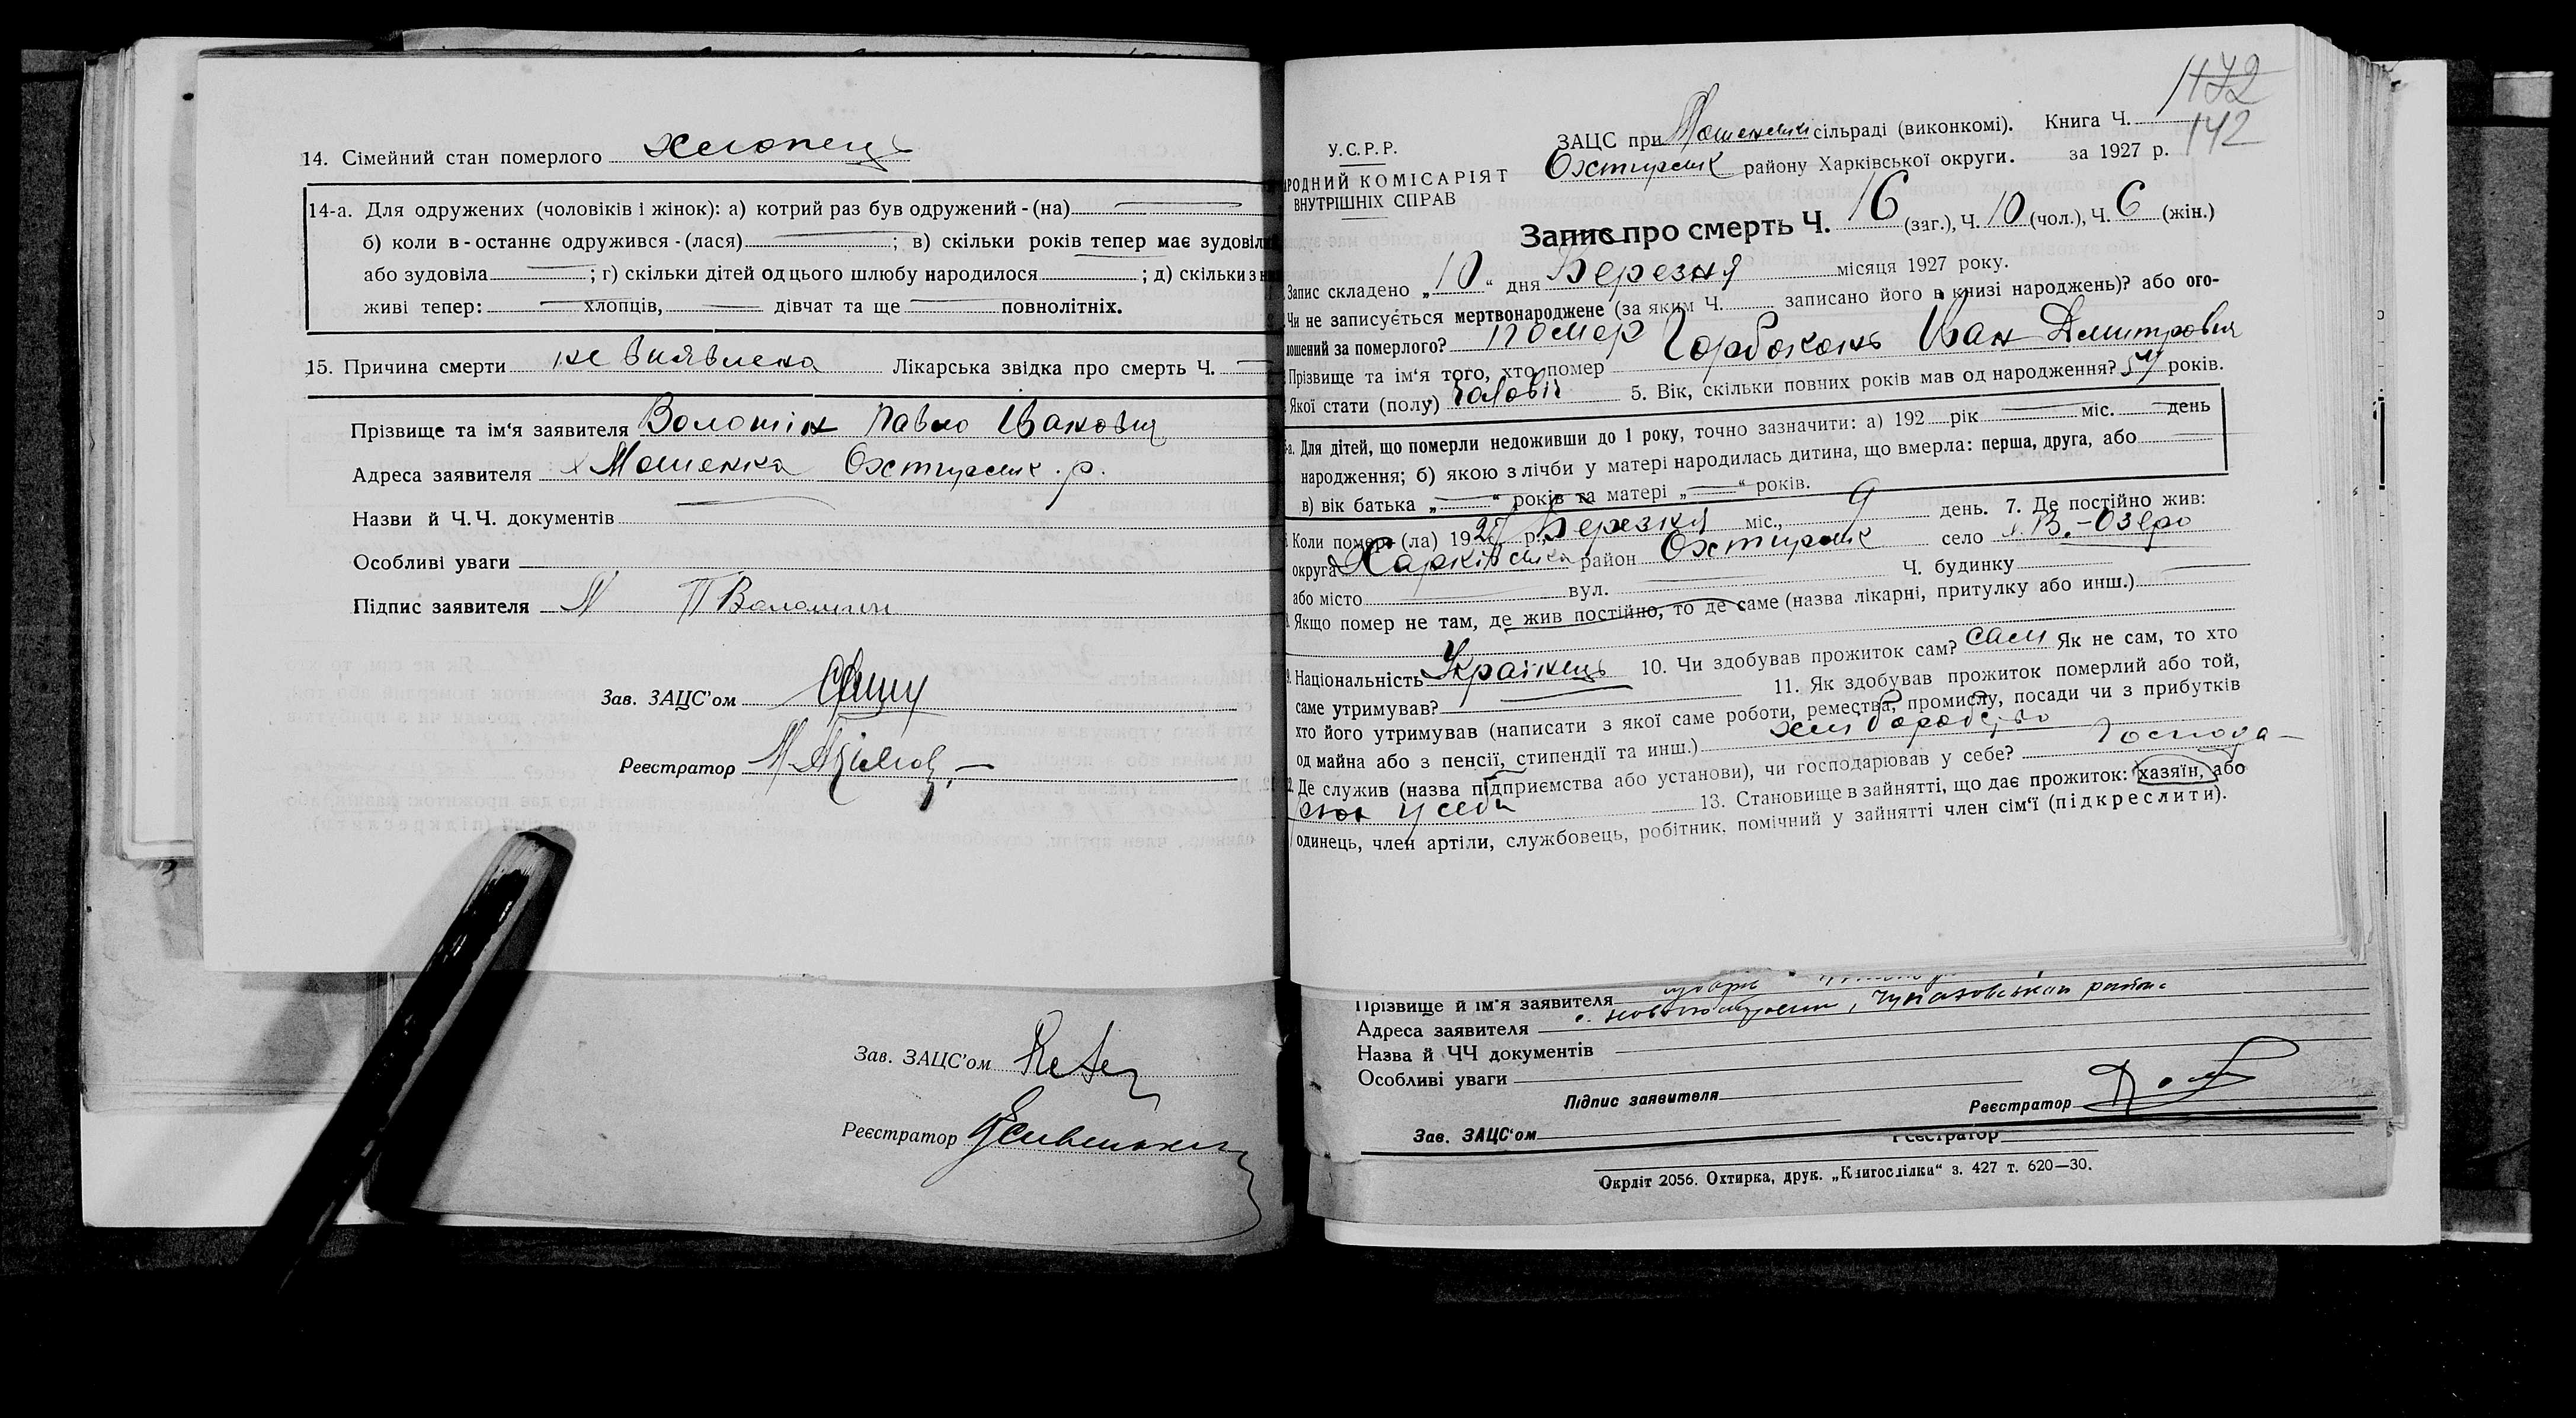 14. Сімейний стан померлого хлопець
14-а. Для одружених (чоловіків і жінок): а) котрий раз був одружений - (на)
б) коли в - останнє одружився - (лася) ; в) скільки років тепер має зудовіл
або зудовіла ; г) скільки дітей од цього шлюбу народилося ; д) скільки з н
живі тепер: хлопців, дівчат та ще повнолітніх.
15. Причина смерти не виявлена Лікарська звідка про смерть Ч.
Прізвище та ім'я заявителя Волошін Павло Іванович
Адреса заявителя х Мошенка Охтирськ. р.
Назви й Ч.Ч. документів
Особливі уваги
Підпис заявителя П Волошин
Зав. ЗАЦС'ом
Реєстратор
Зав. ЗАЦС'ом
Реєстратор
172
142
У.С.Р.Р.
РОДНИЙ КОМІСАРІЯТ
ВНУТРІШНІХ СПРАВ
ЗАЦС при сільраді (виконкомі). Книга Ч.
Охтирськ району Харківської округи. за 1927 р.
Запис про смерть Ч. 16 (заг.), Ч. 10 (чол.), Ч. 6 (жін.)
Запис складено „10“ дня Березня місяця 1927 року.
Чи не записується мертвонароджене (за яким Ч. записано його в книзі народжень)? або ого-
лошений за померлого? помер
Прізвище та ім'я того, хто помер Горбоконь Іван Дмитрович
Якої стати (полу) чоловіч 5. Вік, скільки повних років мав од народження? 54 років.
а. Для дітей, що померли недоживши до 1 року, точно зазначити: а) 192 рік міс. день
народження; б) якою з лічби у матері народилась дитина, що вмерла: перша, друга, або
в) вік батька „ “ років та матері „ “ років.
Коли помер (ла) 1927 р. Березня міс., 9 день. 7. Де постійно жив:
округа Харківська район Охтирськ село х. В.-Озеро
або місто вул. Ч. будинку
Якщо помер не там, де жив постійно, то де саме (назва лікарні, притулку або инш.)
9. Національність Українець 10. Чи здобував прожиток сам? сам Як не сам, то хто
саме утримував? 11. Як здобував прожиток померлий або той,
хто його утримував (написати з якої саме роботи, ремества, промислу, посади чи з прибутків
од майна або з пенсії, стипендії та инш.) хліборобство
Де служив (назва підприємства або установи), чи господарював у себе? Господа-
у себе 13. Становище в зайнятті, що дає прожиток: хазяїн, або
одинець, член артіли, службовець, робітник, помічний у зайнятті член сім'ї (підкреслити).
Прізвище й ім'я заявителя
Адреса заявителя
Назва й ЧЧ документів
Особливі уваги
Підпис заявителя Реєстратор
Зав. ЗАЦС'ом Реєстратор
Окрліт 2056. Охтирка, друк. „Книгоспілки“ з. 427 т. 620—30.